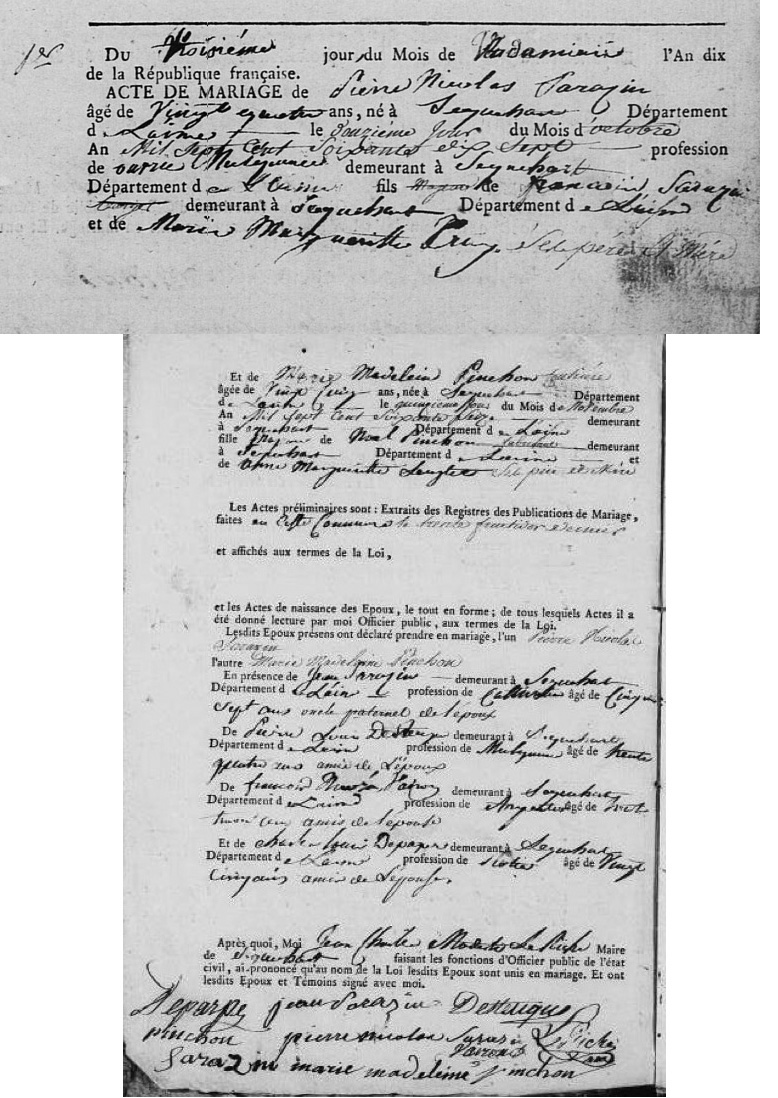 1er
Du troisiéme jour du Mois de Vendemiair l'An dix
de la République française.
ACTE DE MARIAGE de Pierre Nicolas Sarazin
âgé de Vingt quatre ans, né à Sequehart Département
d e Laisne le douziéme Jour du Mois d'octobre
An Mil Sept Cent Soixante dix Sept profession
de ouvrie Mulquinee demeurant à Sequehart
Département d e l'aisne fils de francois Sarazin
demeurant à Sequehart Département d e Laisne
et de Marie Margueritte Ses père et Mère
Et de Marie Madelein Pinchon
âgée de Vingt Cinq ans, née à Sequehart Département
d e Laisne le quinzieme Jour du Mois d e Novembre
An Mil Sept Cent Soixante Seize demeurant
à Sequehart Département d e Laisne
fille de Noel Pinchon demeurant
à Sequehart Département d e Laisne et
de anne Margueritte Ses père et Mère
Les Actes préliminaires sont : Extraits des Registres des Publications de Mariage,
faites en Cette Commune le trente fructidor dernier
et affichés aux termes de la Loi,
et les Actes de naissance des Epoux, le tout en forme ; de tous lesquels Actes il a
été donné lecture par moi Officier public, aux termes de la Loi.
Lesdits Epoux présens ont déclaré prendre en mariage, l'un Pierre Nicolas
Sarazin
l'autre Marie Madeleine Pinchon
En présence de Jean Sarazin demeurant à Sequehart
Département d e Laisne profession de Cultivateur âgé de Cinq
Sept ans oncle paternel de l'époux
De Pierre Louis demeurant à Sequehart
Département d e Laisne profession de Mulquinee âgé de trente
quatre ans amie de L'époux
De francois demeurant à Sequehart
Département d e Laisne profession de âgé de
ans amis de l'épouse
Et de charle Louis demeurant à Sequehart
Département d e Laisne profession de âgé de Vingt
Cinq ans amis de L'épouse.
Après quoi, Moi Jean Maire
de Sequehart faisant les fonctions d'Officier public de l'état
civil, ai prononcé qu'au nom de la Loi lesdits Epoux sont unis en mariage. Et ont
lesdits Epoux et Témoins signé avec moi.
jean Sarazin
pinchon pierre nicolas Sarazin
Sarazin marie madeleine pinchon